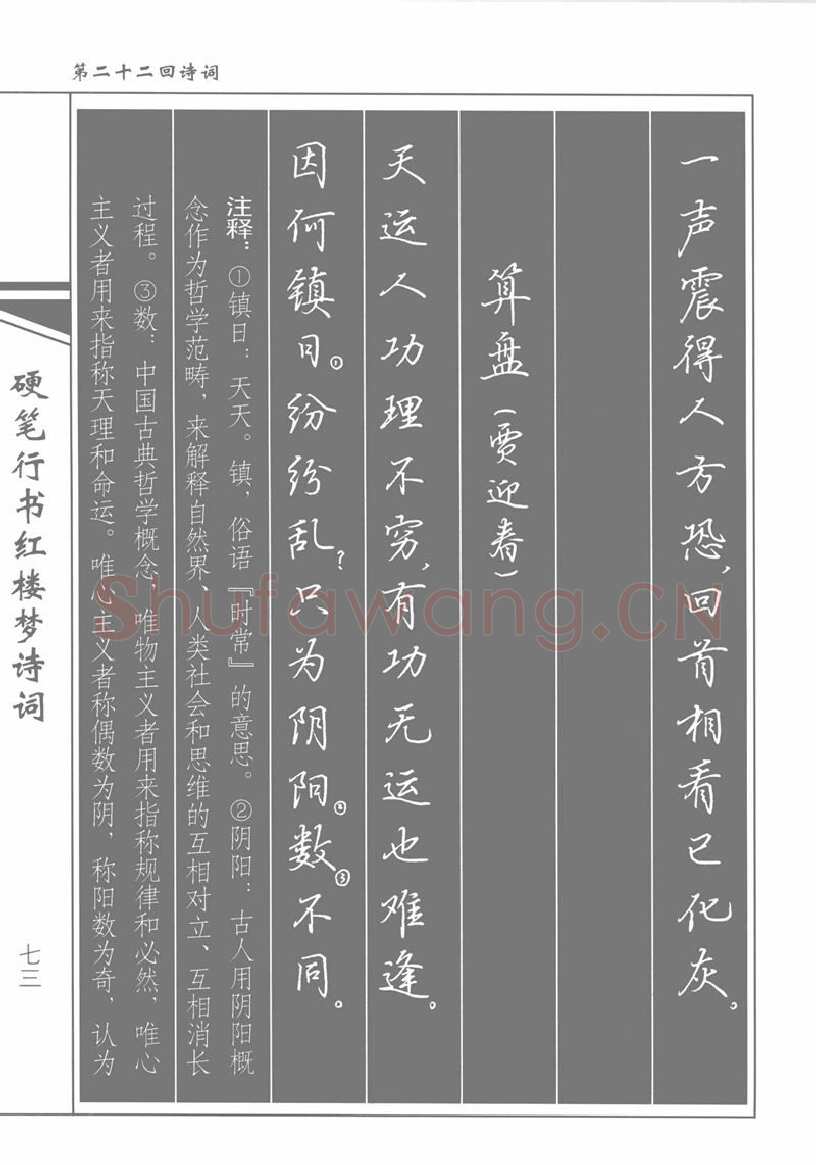 第二十二回诗词
一声震得人方恐，回首相看已化灰。
算盘（贾迎春）
天运人功理不穷，有功无运也难逢。
因何镇日①纷纷乱？只为阴阳②数③不同。
注释：①镇日：天天。镇，俗语『时常』的意思。②阴阳：古人用阴阳概
念作为哲学范畴，来解释自然界、人类社会和思维的互相对立、互相消长
过程。③数：中国古典哲学概念，唯物主义者用来指称规律和必然，唯心
主义者用来指称天理和命运。唯心主义者称偶数为阴，称阳数为奇，认为
硬笔行书红楼梦诗词
七三
Shufawang.CN